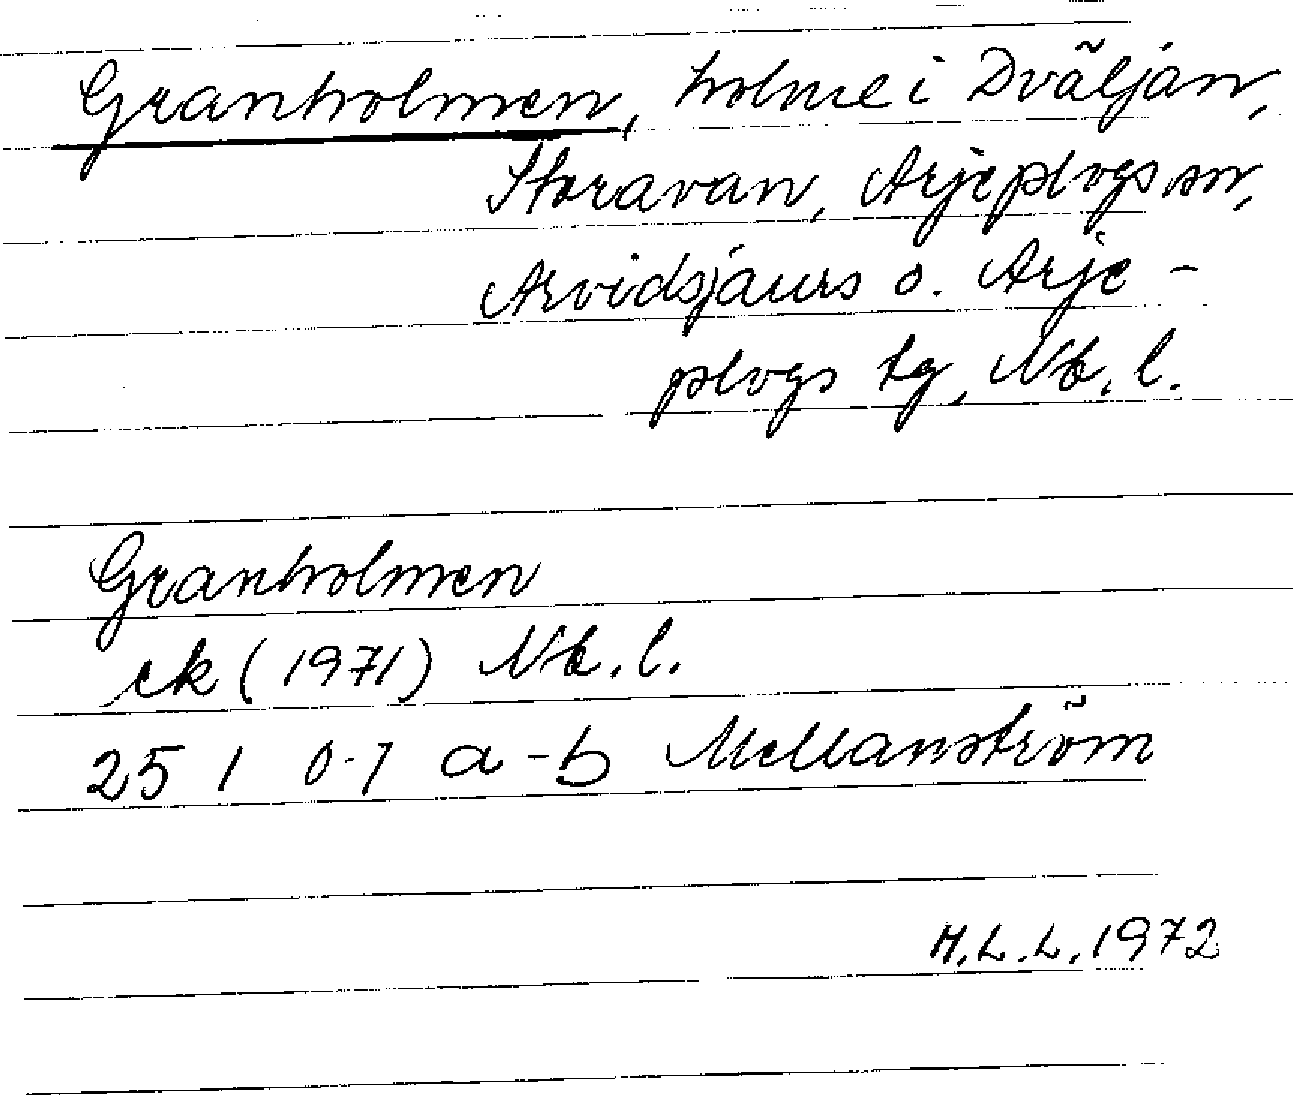 Granholmen, holme i Dväljan,
Storavan, Arjeplogs sn,
Arvidsjaurs o. Arje-
plogs tg, Nb. l.
Granholmen
ek (1971) Nb. l.
25 I 0-1 a-b Mellanström
H.L.L. 1972